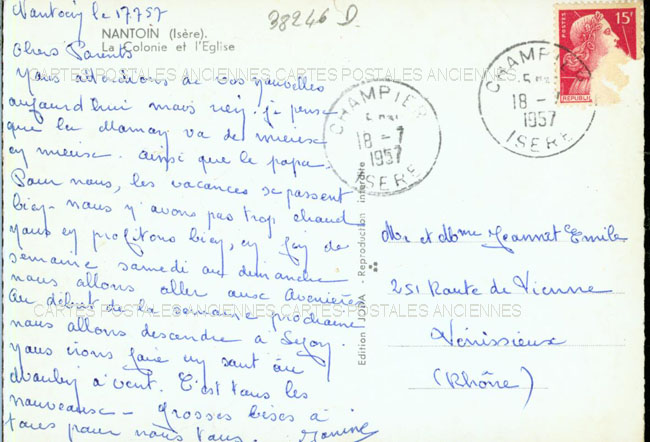 Nantoin le 17.7.57
38246 D.
NANTOIN (Isère).
La Colonie et l'Eglise
Chers Parents
Nous attendions de vos nouvelles
aujourd'hui mais rien. je pense
que la Maman va de mieux
en mieux. ainsi que le papa.
Pour nous, les vacances se passent
bien. nous n'avons pas trop chaud
nous en profitons bien, en fin de
semaine samedi ou dimanche
nous allons aller aux Avenières
Au début de la semaine prochaine
nous allons descendre à Lyon.
nous irons faire un saut au
moulin à vent. C'est tous les
nouveaux - grosses bises à
tous pour nous tous. Janine
CARTES POSTALES ANCIENNES CARTES POSTALES ANCIENNES
CARTES POSTALES ANCIENNES CARTES POSTALES ANCIENNES
Edition JODA - Reproduction interdite
CHAMPIER
18 - 7
1957
ISERE
CHAMPIER
18 -
1957
ISERE
POSTES
15F
REPUBLIQUE
Mr et Mme Jeannet Emile
251 Route de Vienne
Vénissieux
(Rhône)